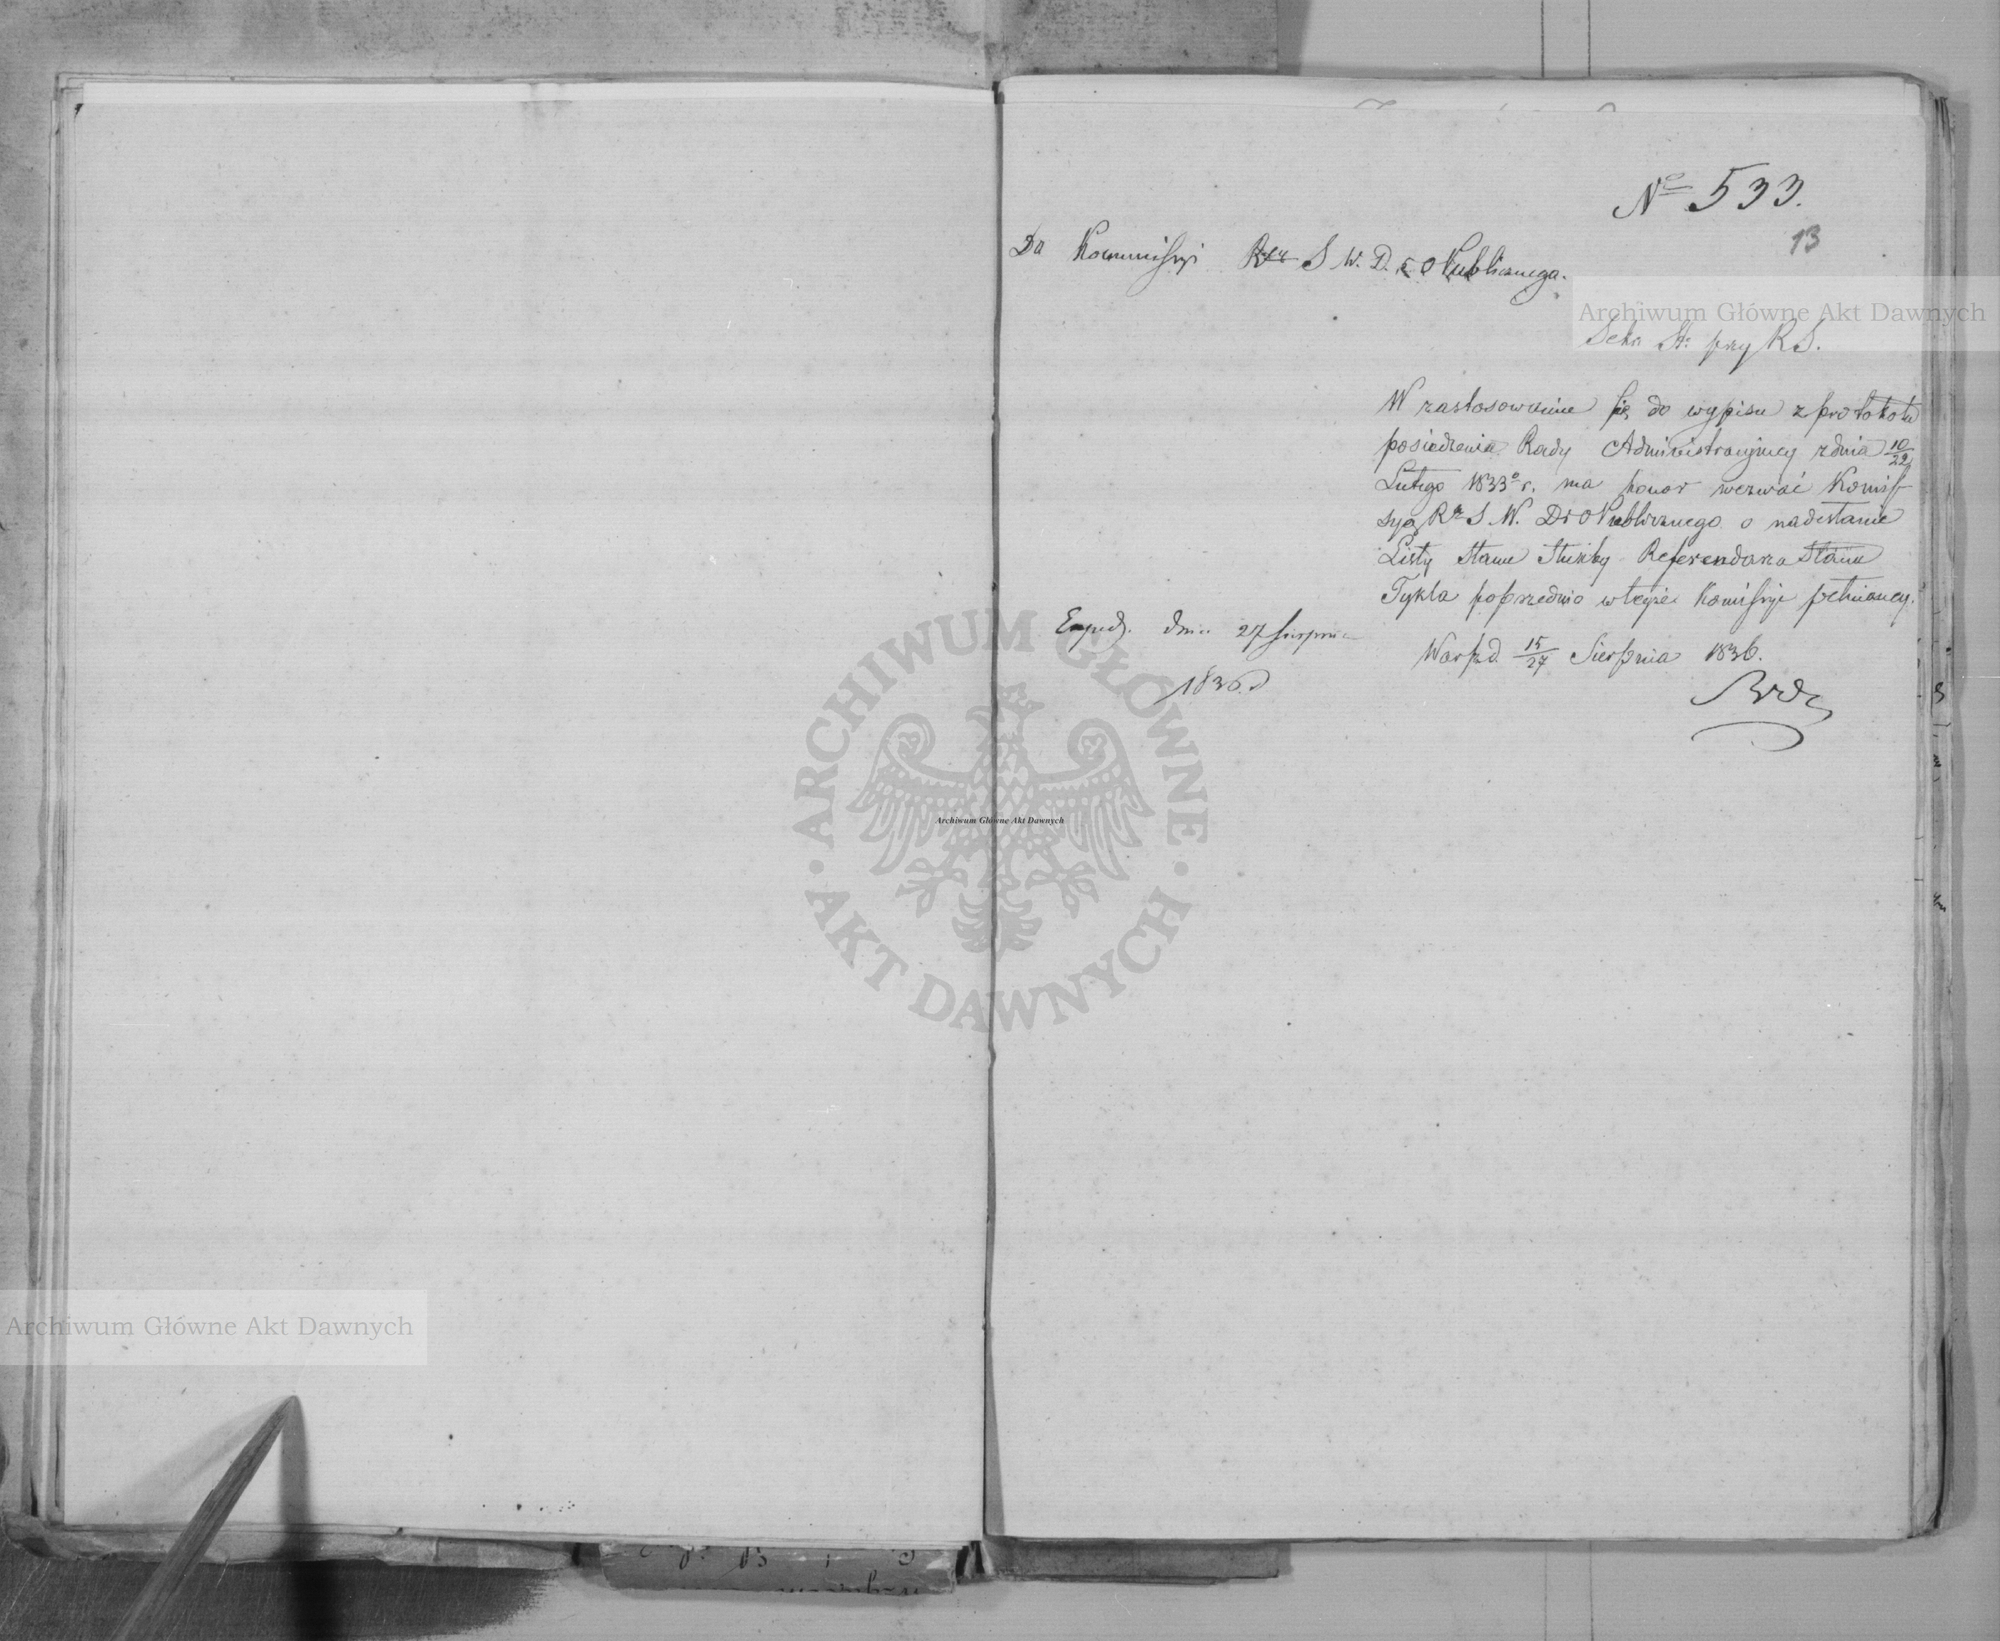 No 533.
13
Do Kommissyi S. W. D. i O Publicznego.
Archiwum Główne Akt Dawnych
Sekr. St. przy R S.
W zastosowaniu się do wypisu z protokołu
posiedzenia Rady Administracyjney z dnia 10/22
Lutego 1833o r. ma honor wezwać Komis-
syą Rz. S. W. D i O Publicznego o nadesłanie
Listy Stanu Służby Referendarza Stanu
Tykla poprzednio w teyże Komissyi pełnioney.
Exped. dnia 27 Sierpnia
1836.
Warsz. d. 15/27 Sierpnia 1836.
ARCHIWUM GŁÓWNE AKT DAWNYCH
Archiwum Główne Akt Dawnych
Archiwum Główne Akt Dawnych